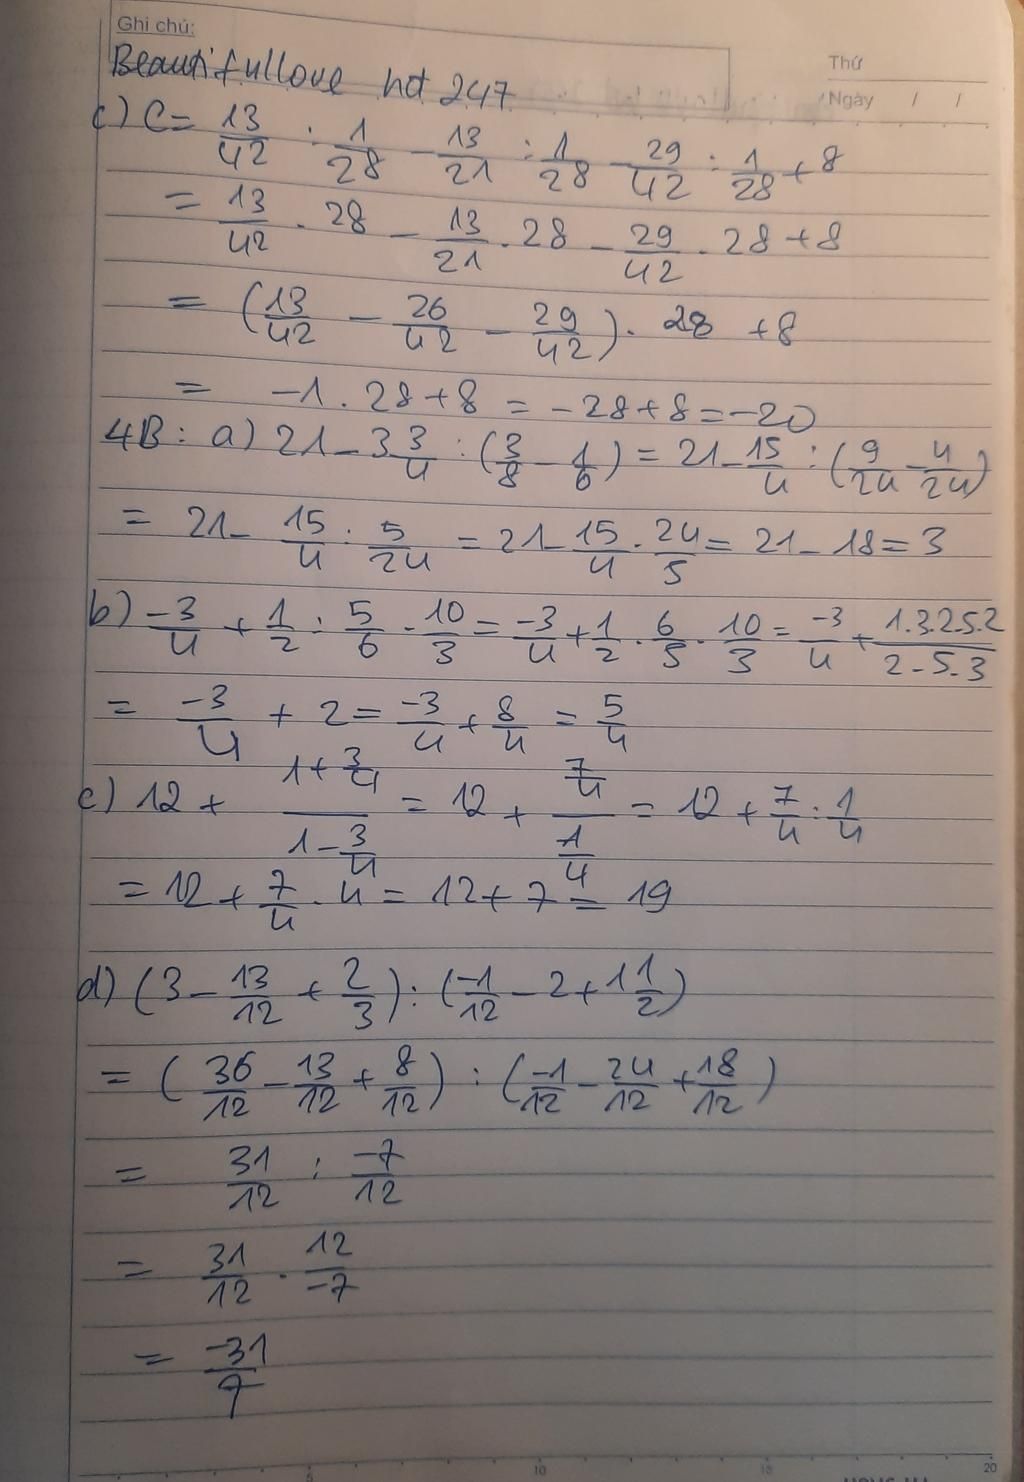 Ghi chú:
Thứ
Ngày / /
Beautifullove hđ 247
c) C = 13/42 : 1/28 - 13/21 : 1/28 - 29/42 : 1/28 + 8
= 13/42 . 28 - 13/21 . 28 - 29/42 . 28 + 8
= (13/42 - 26/42 - 29/42) . 28 + 8
= -1 . 28 + 8 = -28 + 8 = -20
4B: a) 21 - 3 3/4 : (3/8 - 1/6) = 21 - 15/4 : (9/24 - 4/24)
= 21 - 15/4 : 5/24 = 21 - 15/4 . 24/5 = 21 - 18 = 3
b) -3/4 + 1/2 : 5/6 . 10/3 = -3/4 + 1/2 . 6/5 . 10/3 = -3/4 + 1.3.2.5.2/2.5.3
= -3/4 + 2 = -3/4 + 8/4 = 5/4
c) 12 + (1 + 3/4)/(1 - 3/4) = 12 + (7/4)/(1/4) = 12 + 7/4 : 1/4
= 12 + 7/4 . 4 = 12 + 7 = 19
d) (3 - 13/12 + 2/3) : (-1/12 - 2 + 1 1/2)
= (36/12 - 13/12 + 8/12) : (-1/12 - 24/12 + 18/12)
= 31/12 : -7/12
= 31/12 . 12/-7
= -31/7
5 10 15 20